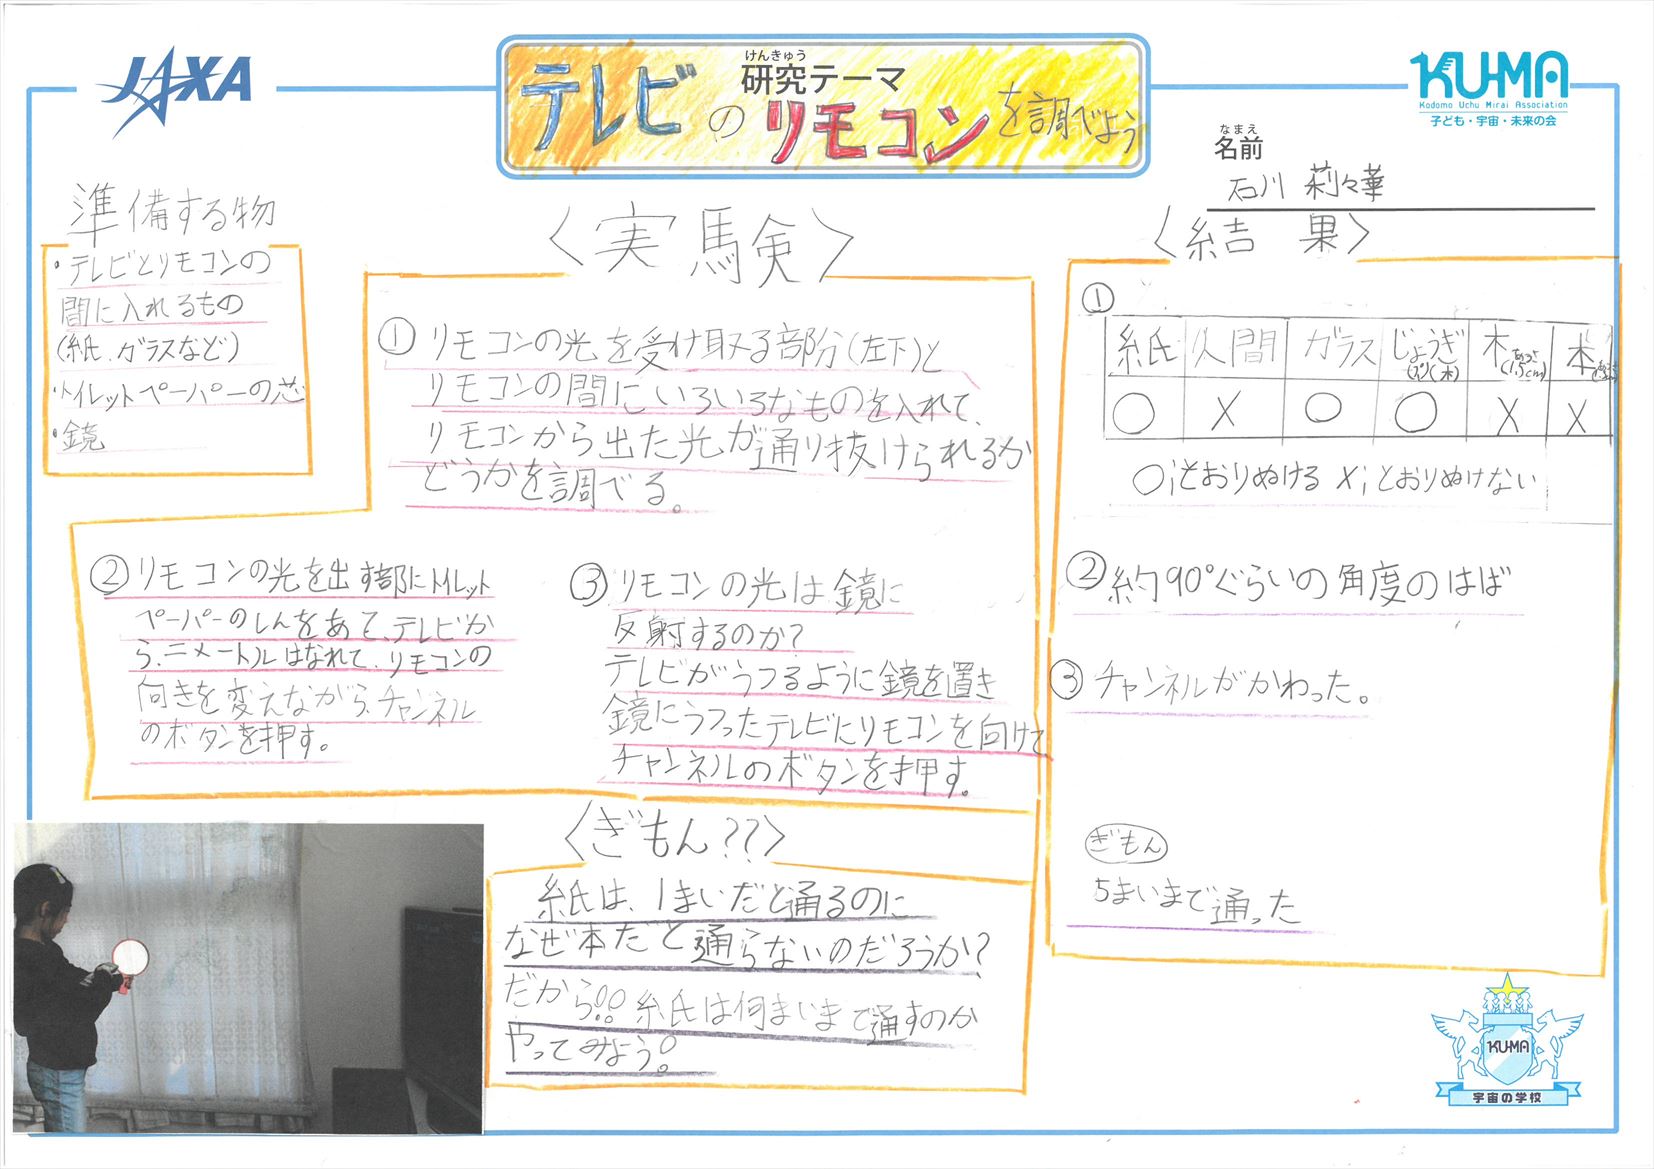 JAXA
けんきゅう
研究テーマ
テレビのリモコンを調べよう
KU-MA
Kodomo Uchu Mirai Association
子ども・宇宙・未来の会
なまえ
名前
石川 莉々華
準備する物
・テレビとリモコンの
間に入れるもの
(紙、ガラスなど)
・トイレットペーパーの芯
・鏡
〈実験〉
① リモコンの光を受け取る部分(左下)と
リモコンの間にいろいろなものを入れて、
リモコンから出た光が通り抜けられるか
どうかを調べる。
② リモコンの光を出す部にトイレット
ペーパーのしんをあて、テレビか
ら、ニメートルはなれて、リモコンの
向きを変えながら、チャンネル
のボタンを押す。
③ リモコンの光は鏡に
反射するのか?
テレビがうつるように鏡を置き
鏡にうつったテレビにリモコンを向けて
チャンネルのボタンを押す。
〈ぎもん??〉
紙は、1まいだと通るのに
なぜ本だと通らないのだろうか?
だから!! 紙は何まいまで通すのか
やってみよう!
〈結果〉
①
紙 人間 ガラス じょうぎ 木(1.5cm) 本
○ X ○ ○ X X
○;とおりぬける X;とおりぬけない
② 約90°ぐらいの角度のはば
③ チャンネルがかわった。
ぎもん
5まいまで通った
KU-MA
宇宙の学校